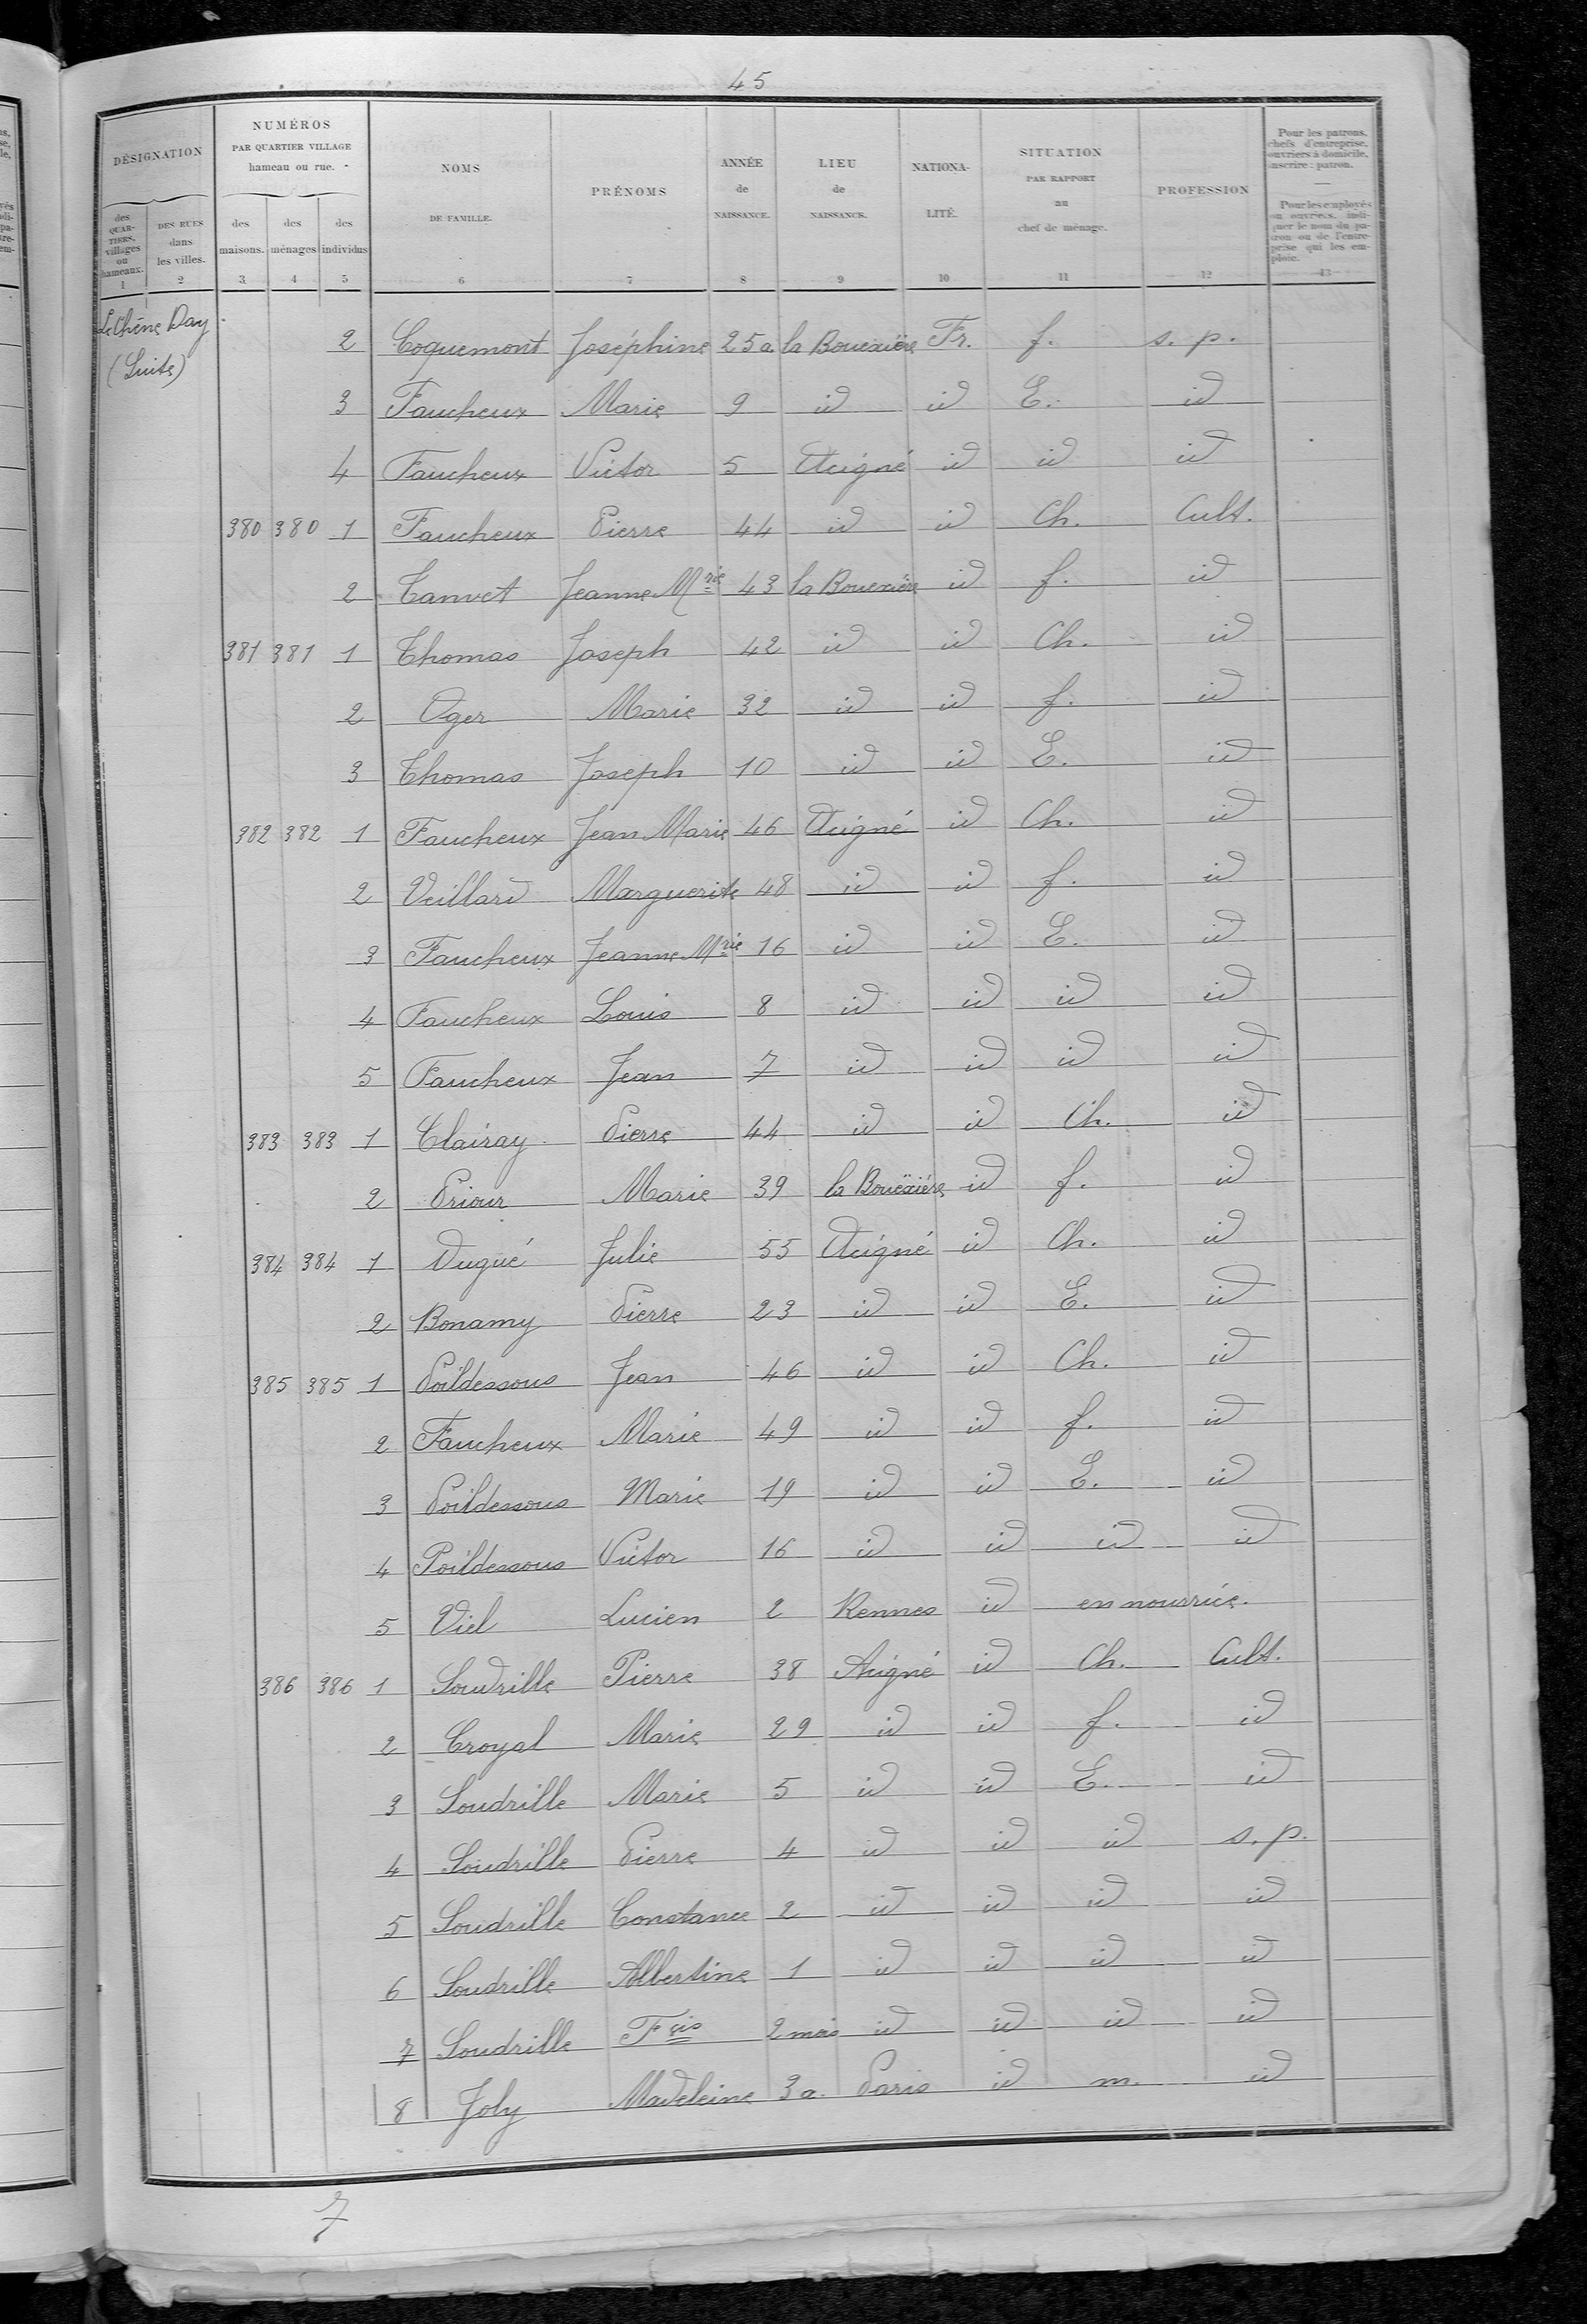 45
DÉSIGNATION
NUMÉROS
PAR QUARTIER VILLAGE
hameau ou rue.
des QUARTIERS, villages ou hameaux. 1
DES RUES dans les villes. 2
des maisons. 3
des ménages 4
des individus 5
NOMS DE FAMILLE. 6
PRÉNOMS 7
ANNÉE de NAISSANCE. 8
LIEU de NAISSANCE. 9
NATIONALITÉ. 10
SITUATION PAR RAPPORT au chef de ménage. 11
PROFESSION 12
Pour les patrons, chefs d'entreprise, ouvriers à domicile, inscrire : patron.
Pour les employés ou ouvriers, indiquer le nom du patron ou de l'entreprise qui les emploie. 13
Le Chêne Day
(Suite)
2 Coquemont Joséphine 25 a la Bouexière Fr. f. s. p.
3 Faucheux Marie 9 id id E. id
4 Faucheux Victor 5 Acigné id id id
380 380 1 Faucheux Pierre 44 id id Ch. Cult.
2 Tanvet Jeanne Mrie 43 la Bouexière id f. id
381 381 1 Thomas Joseph 42 id id Ch. id
2 Oger Marie 32 id id f. id
3 Thomas Joseph 10 id id E. id
382 382 1 Faucheux Jean Marie 46 Acigné id Ch. id
2 Veillard Marguerite 48 id id f. id
3 Faucheux Jeanne Mrie 16 id id E. id
4 Faucheux Louis 8 id id id id
5 Faucheux Jean 7 id id id id
383 383 1 Clairay Pierre 44 id id Ch. id
2 Priour Marie 39 la Bouëxière id f. id
384 384 1 Dugué Julie 55 Acigné id Ch. id
2 Bonamy Pierre 23 id id E. id
385 385 1 Poildessous Jean 46 id id Ch. id
2 Faucheux Marie 49 id id f. id
3 Poildessous Marie 19 id id E. id
4 Poildessous Victor 16 id id id id
5 Viel Lucien 2 Rennes id en nourrice.
386 386 1 Soudrille Pierre 38 Acigné id Ch. Cult.
2 Croyal Marie 29 id id f. id
3 Soudrille Marie 5 id id E. id
4 Soudrille Pierre 4 id id id s. p.
5 Soudrille Constance 2 id id id id
6 Soudrille Albertine 1 id id id id
7 Soudrille Fçis 2 mois id id id id
8 Joly Madeleine 3 a. Paris id m. id
7